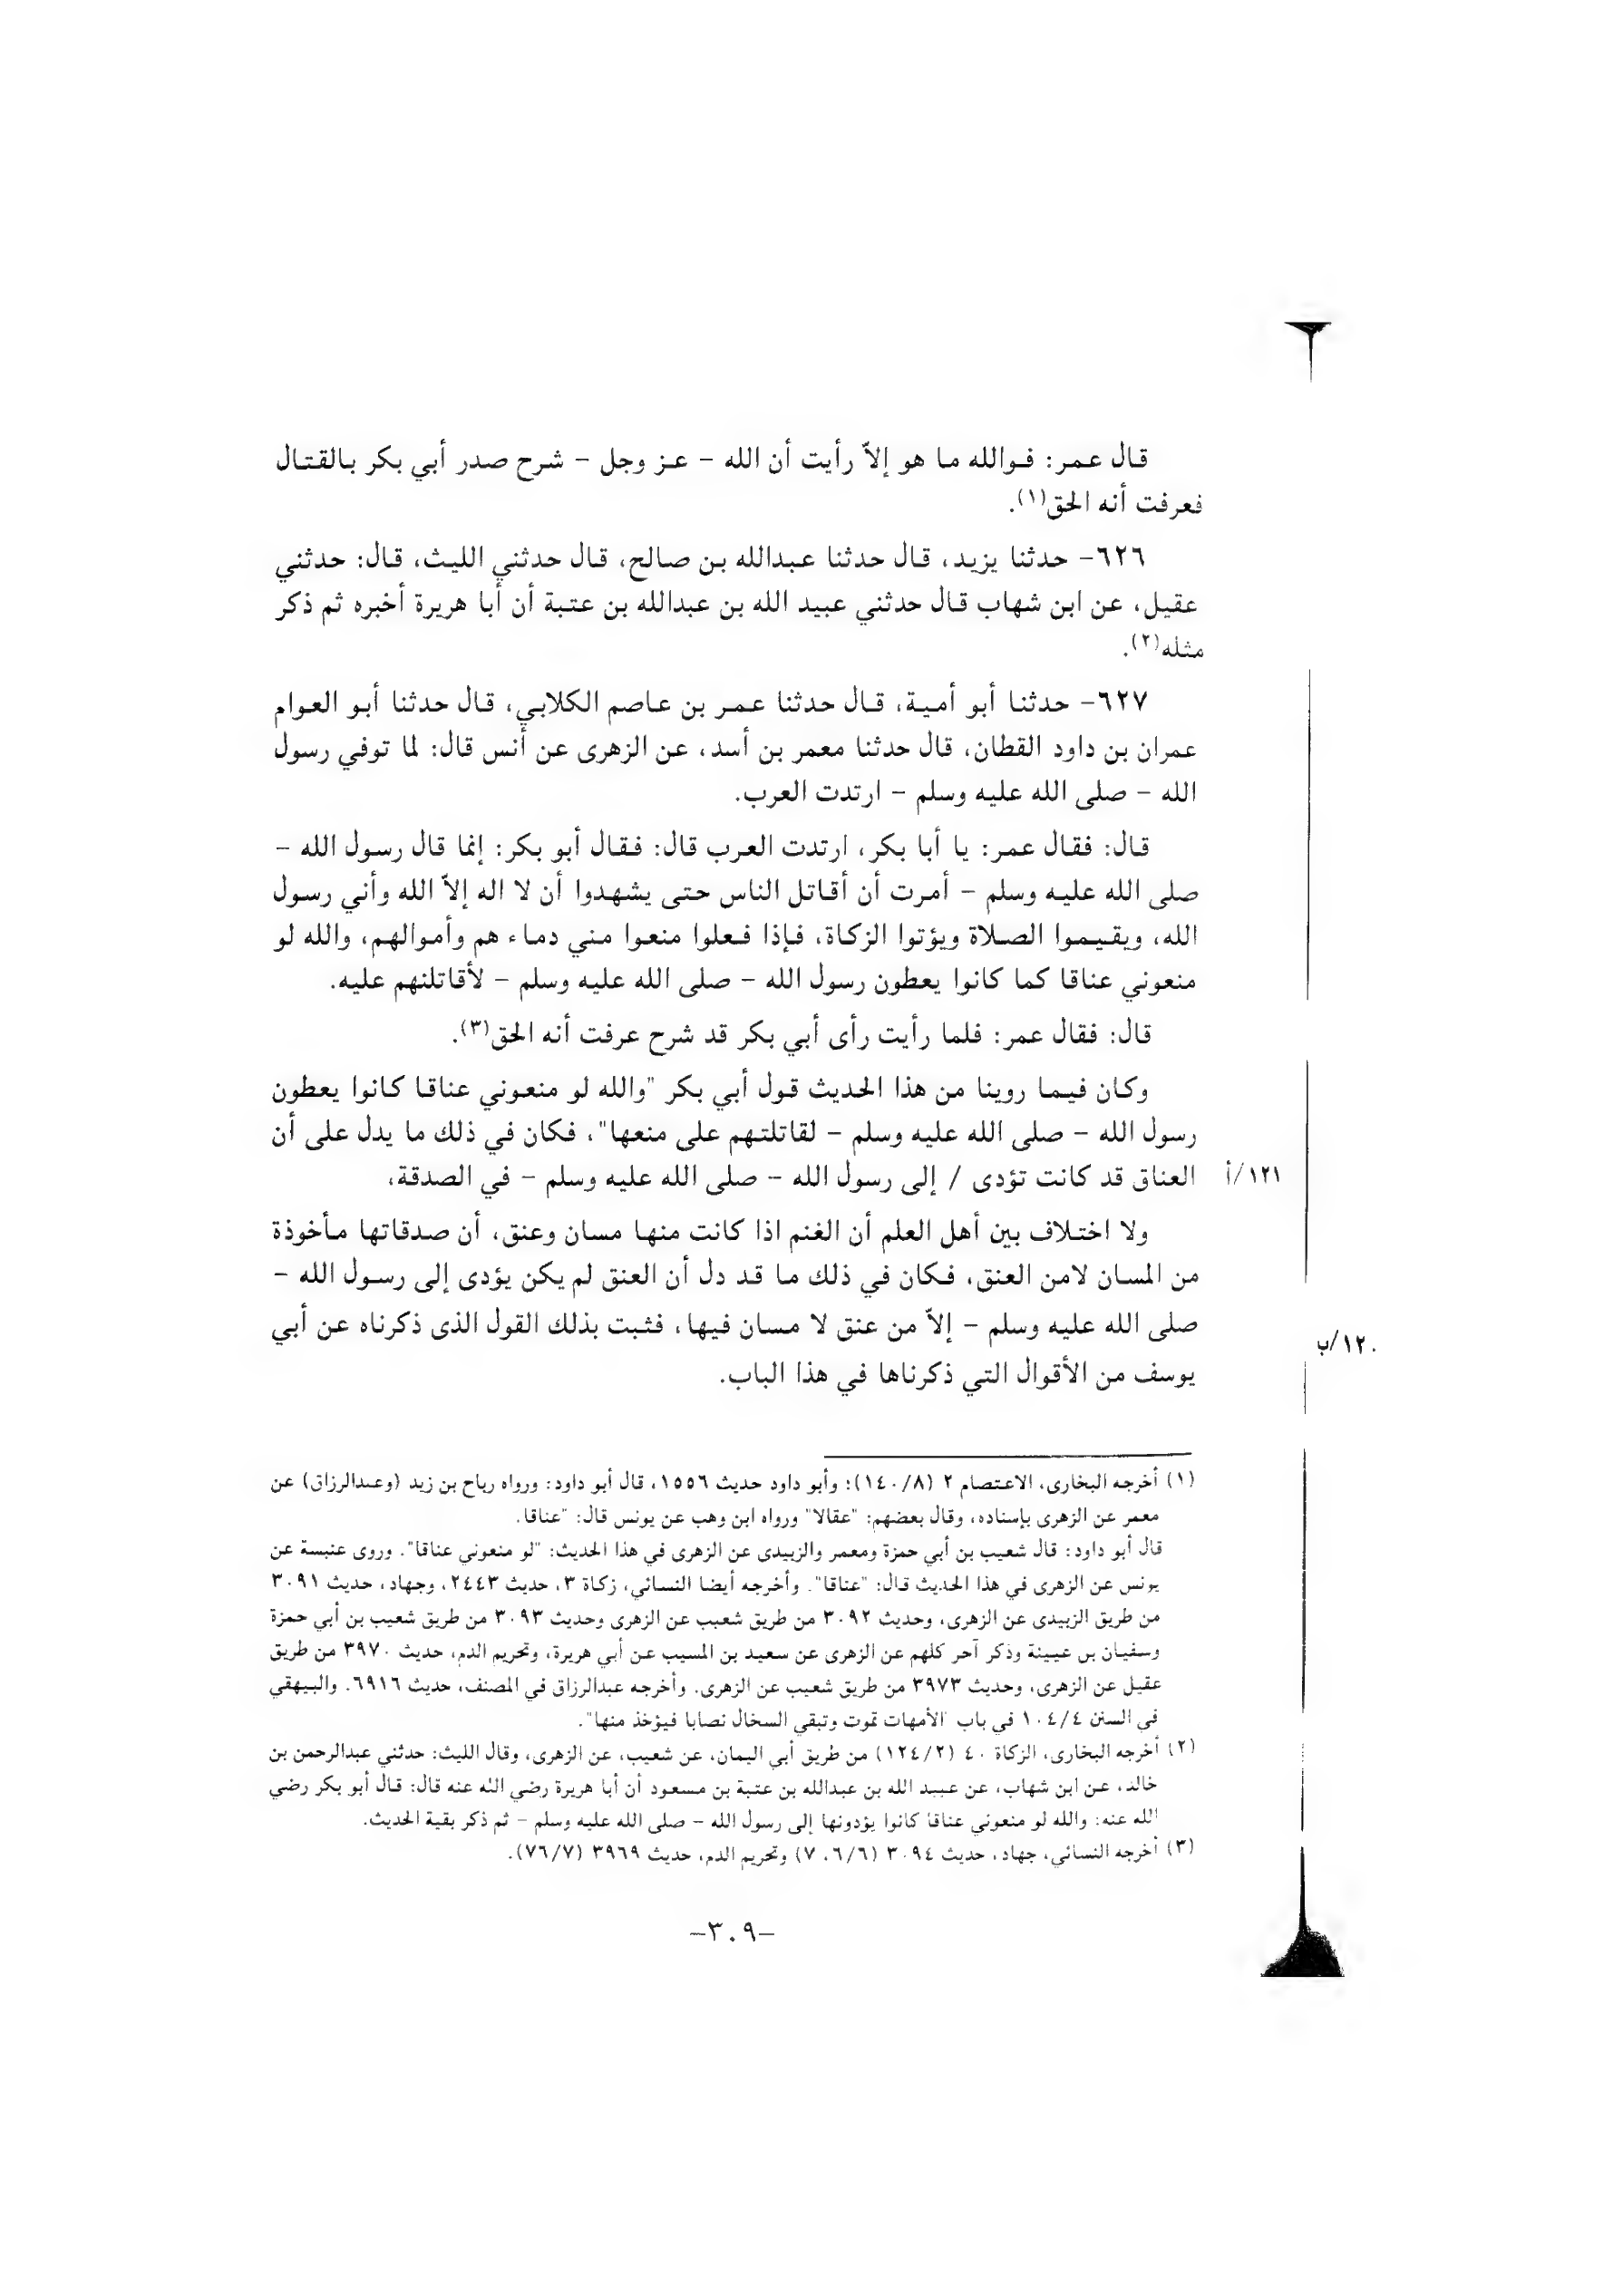 قال عمر: فوالله ما هو إلاّ رأيت أن الله – عز وجل – شرح صدر أبي بكر بالقتال
فعرفت أنه الحق(١).
٦٢٦– حدثنا يزيد، قال حدثنا عبدالله بن صالح، قال حدثني الليث، قال: حدثني
عقيل، عن ابن شهاب قال حدثني عبيد الله بن عبدالله بن عتبة أن أبا هريرة أخبره ثم ذكر
مثله(٢).
٦٢٧– حدثنا أبو أمية، قال حدثنا عمر بن عاصم الكلابي، قال حدثنا أبو العوام
عمران بن داود القطان، قال حدثنا معمر بن أسد، عن الزهرى عن أنس قال: لما توفي رسول
الله – صلى الله عليه وسلم – ارتدت العرب.
قال: فقال عمر: يا أبا بكر، ارتدت العرب قال: فقال أبو بكر: إنما قال رسول الله –
صلى الله عليه وسلم – أمرت أن أقاتل الناس حتى يشهدوا أن لا اله إلاّ الله وأني رسول
الله، ويقيموا الصلاة ويؤتوا الزكاة، فإذا فعلوا منعوا مني دماء هم وأموالهم، والله لو
منعوني عناقا كما كانوا يعطون رسول الله – صلى الله عليه وسلم – لأقاتلنهم عليه.
قال: فقال عمر: فلما رأيت رأى أبي بكر قد شرح عرفت أنه الحق(٣).
وكان فيما روينا من هذا الحديث قول أبي بكر "والله لو منعوني عناقا كانوا يعطون
رسول الله – صلى الله عليه وسلم – لقاتلتهم على منعها"، فكان في ذلك ما يدل على أن
العناق قد كانت تؤدى / إلى رسول الله – صلى الله عليه وسلم – في الصدقة،
١٢١/أ
ولا اختلاف بين أهل العلم أن الغنم اذا كانت منها مسان وعنق، أن صدقاتها مأخوذة
من المسان لامن العنق، فكان في ذلك ما قد دل أن العنق لم يكن يؤدى إلى رسول الله –
صلى الله عليه وسلم – إلاّ من عنق لا مسان فيها، فثبت بذلك القول الذى ذكرناه عن أبي
١٢٠/ب
يوسف من الأقوال التي ذكرناها في هذا الباب.
(١) أخرجه البخارى، الاعتصام ٢ (١٤٠/٨)؛ وأبو داود حديث ١٥٥٦، قال أبو داود: ورواه رباح بن زيد (وعبدالرزاق) عن
معمر عن الزهرى بإسناده، وقال بعضهم: "عقالا" ورواه ابن وهب عن يونس قال: "عناقا.
قال أبو داود: قال شعيب بن أبي حمزة ومعمر والزبيدى عن الزهرى في هذا الحديث: "لو منعوني عناقا". وروى عنبسة عن
يونس عن الزهرى في هذا الحديث قال: "عناقا". وأخرجه أيضا النسائي، زكاة ٣، حديث ٢٤٤٣، وجهاد، حديث ٣٠٩١
من طريق الزبيدى عن الزهرى، وحديث ٣٠٩٢ من طريق شعيب عن الزهرى وحديث ٣٠٩٣ من طريق شعيب بن أبي حمزة
وسفيان بن عيينة وذكر آخر كلهم عن الزهرى عن سعيد بن المسيب عن أبي هريرة، وتحريم الدم، حديث ٣٩٧٠ من طريق
عقيل عن الزهرى، وحديث ٣٩٧٣ من طريق شعيب عن الزهرى. وأخرجه عبدالرزاق في المصنف، حديث ٦٩١٦. والبيهقي
في السنن ١٠٤/٤ في باب "الأمهات تموت وتبقي السخال نصابا فيؤخذ منها".
(٢) أخرجه البخارى، الزكاة ٤٠ (١٢٤/٢) من طريق أبي اليمان، عن شعيب، عن الزهرى، وقال الليث: حدثني عبدالرحمن بن
خالد، عن ابن شهاب، عن عبيد الله بن عبدالله بن عتبة بن مسعود أن أبا هريرة رضي الله عنه قال: قال أبو بكر رضي
الله عنه: والله لو منعوني عناقا كانوا يؤدونها إلى رسول الله – صلى الله عليه وسلم – ثم ذكر بقية الحديث.
(٣) أخرجه النسائي، جهاد، حديث ٣٠٩٤ (٦/٦، ٧) وتحريم الدم، حديث ٣٩٦٩ (٧٦/٧).
–٣٠٩–